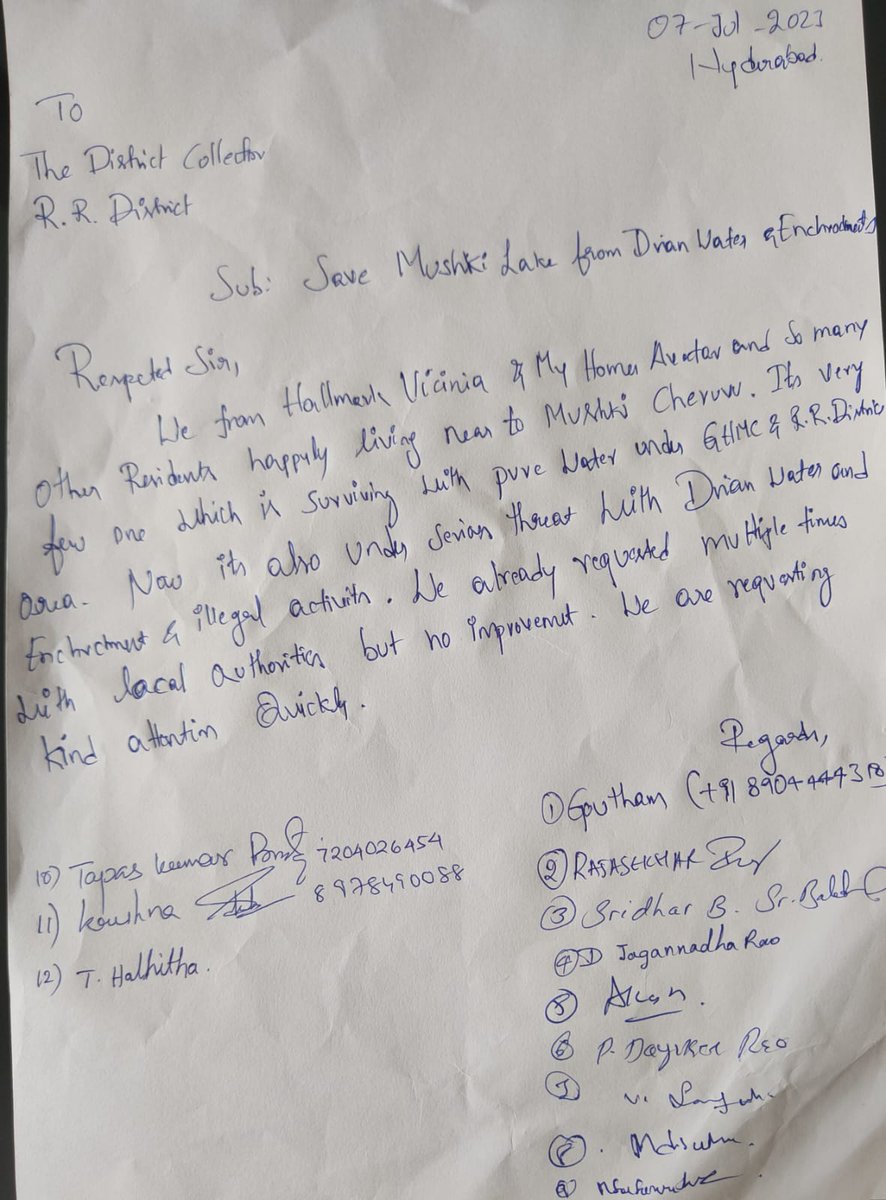 07-Jul-2023
Hyderabad.
To
The District Collector
R.R. District
Sub: Save Mushki Lake from Drian Water & Enchrodments
Respected Sir,
We from Hallmark Vicinia & My Home Avatar and so many
other Residents happily living near to Mushki Cheruvu. Its very
few one which is surviving with pure water under GHMC & R.R.District
area. Now its also under serian threat with Drian Water and
Enchrctment & illegal activits. We already requested multiple times
with local authorities but no improvemut. We are requesting
kind attention Quickly.
Regards,
① Goutham (+91 8904444318
② RAJASEKHAR
③ Sridhar B.
④ D Jagannadha Rao
⑤
⑥ P. Dayaker Rao
⑦ V.
⑧
⑨
10) Tapas kumar 7204026454
11) kaushna 8978490088
12) T. Halhitha.